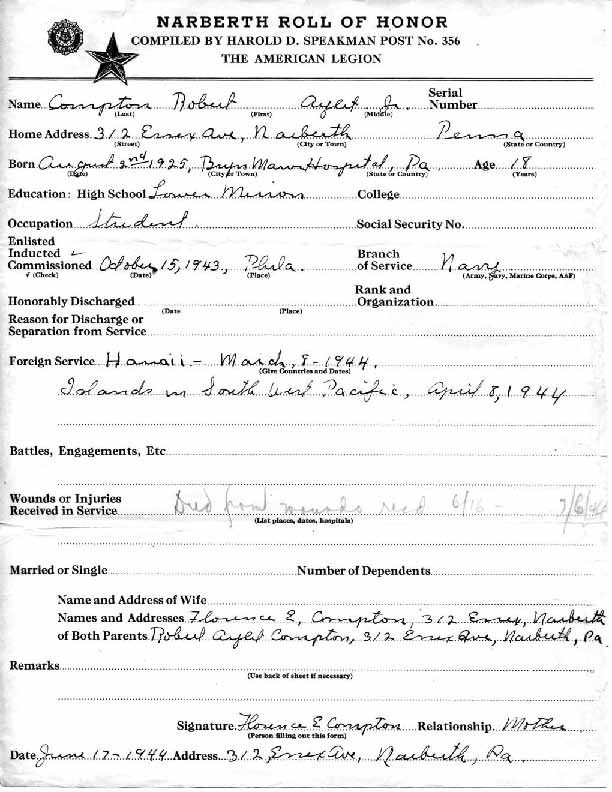 NARBERTH ROLL OF HONOR
COMPILED BY HAROLD D. SPEAKMAN POST No. 356
THE AMERICAN LEGION
Name Compton Robert Aylet Jr. Serial Number
(Last) (First) (Middle)
Home Address 312 Essex Ave, Narberth Penna
(Street) (City or Town) (State or Country)
Born August 2nd 1925, Bryn Mawr Hospital, Pa Age 18
(Date) (City or Town) (State or Country) (Years)
Education: High School Lower Merion College
Occupation Student Social Security No.
Enlisted
Inducted ✓
Commissioned October 15, 1943, Phila. Branch of Service Navy
√ (Check) (Date) (Place) (Army, Navy, Marine Corps, AAF)
Honorably Discharged Rank and Organization
(Date (Place)
Reason for Discharge or
Separation from Service
Foreign Service Hawaii - March, 8 - 1944,
(Give Countries and Dates)
Islands in South West Pacific, April 8, 1944
Battles, Engagements, Etc
Wounds or Injuries
Received in Service Died from wounds recd 6/16 - 7/6/44
(List places, dates, hospitals)
Married or Single Number of Dependents
Name and Address of Wife
Names and Addresses Florence E, Compton, 312 Essex, Narberth
of Both Parents Robert Aylet Compton, 312 Essex Ave, Narberth, Pa
Remarks
(Use back of sheet if necessary)
Signature Florence E Compton Relationship Mother
(Person filling out this form)
Date June 17 - 1944 Address 312, Essex Ave, Narberth, Pa.